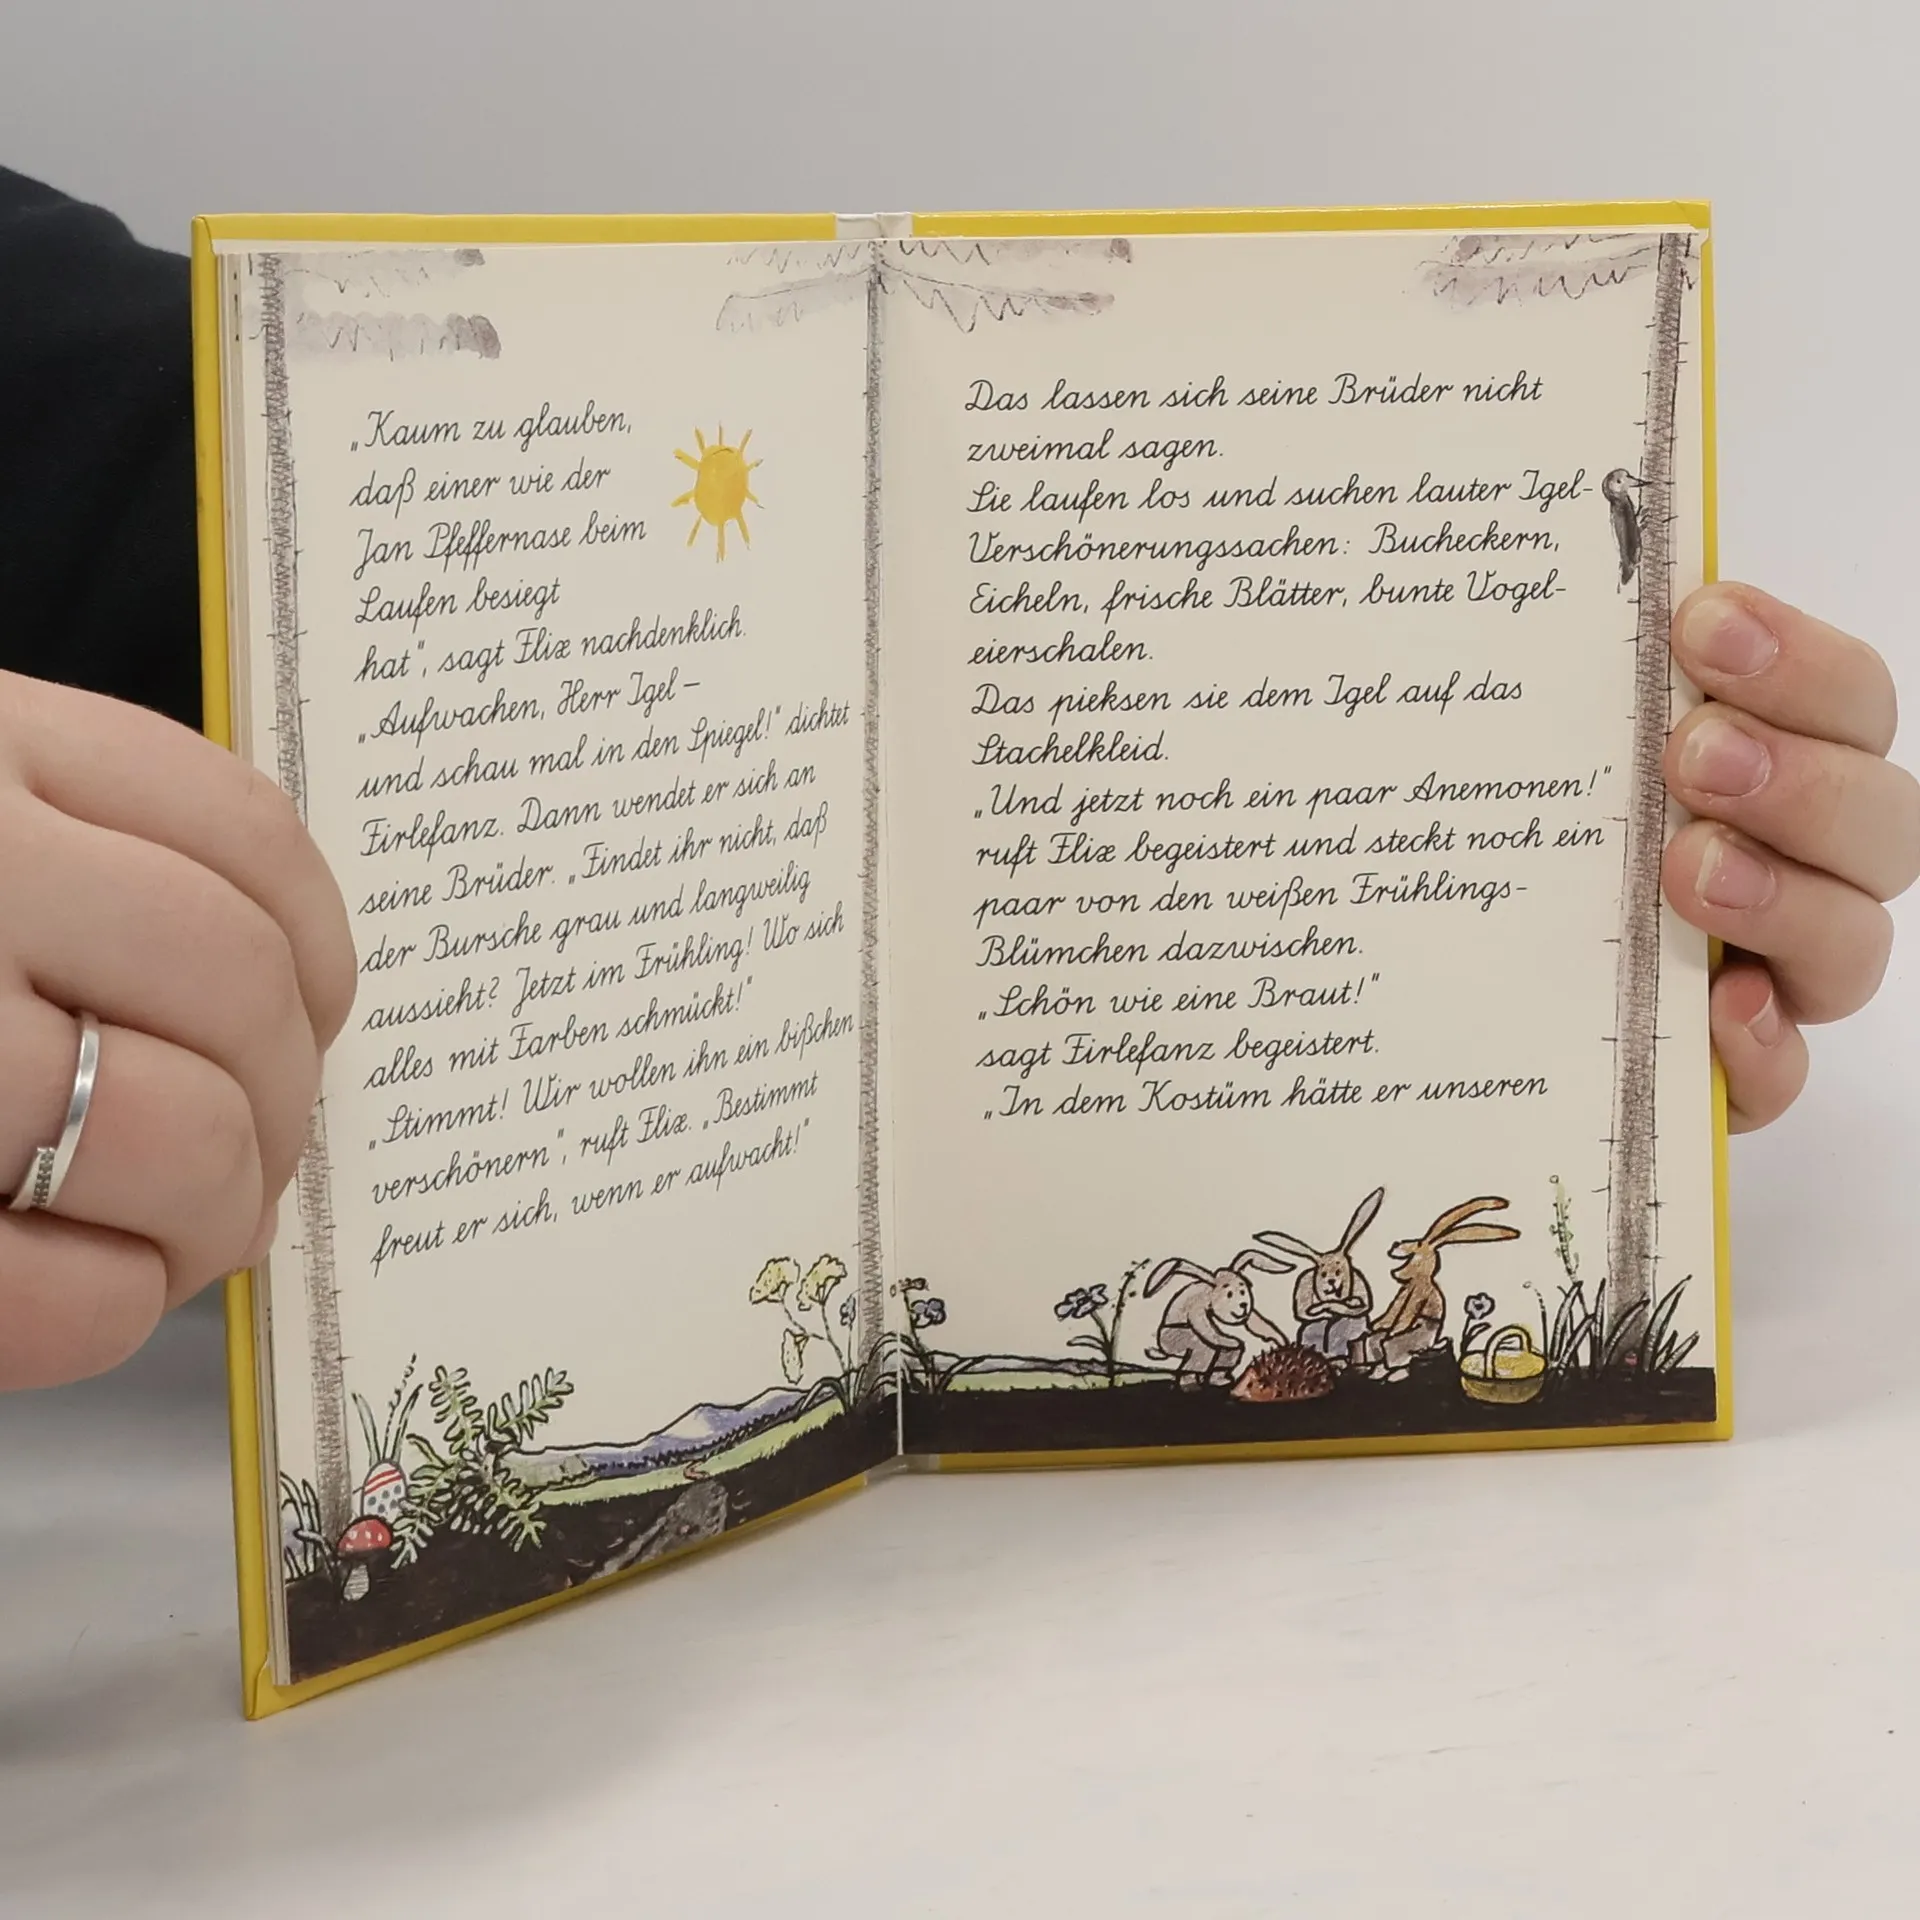 „Kaum zu glauben,
daß einer wie der
Jan Pfeffernase beim
Laufen besiegt
hat", sagt Flix nachdenklich.
„Aufwachen, Herr Igel –
und schau mal in den Spiegel!" dichtet
Firlefanz. Dann wendet er sich an
seine Brüder. „Findet ihr nicht, daß
der Bursche grau und langweilig
aussieht? Jetzt im Frühling! Wo sich
alles mit Farben schmückt!"
„Stimmt! Wir wollen ihn ein bißchen
verschönern", ruft Flix. „Bestimmt
freut er sich, wenn er aufwacht!"
Das lassen sich seine Brüder nicht
zweimal sagen.
Sie laufen los und suchen lauter Igel-
Verschönerungssachen: Bucheckern,
Eicheln, frische Blätter, bunte Vogel-
eierschalen.
Das pieksen sie dem Igel auf das
Stachelkleid.
„Und jetzt noch ein paar Anemonen!"
ruft Flix begeistert und steckt noch ein
paar von den weißen Frühlings-
Blümchen dazwischen.
„Schön wie eine Braut!"
sagt Firlefanz begeistert.
„In dem Kostüm hätte er unseren